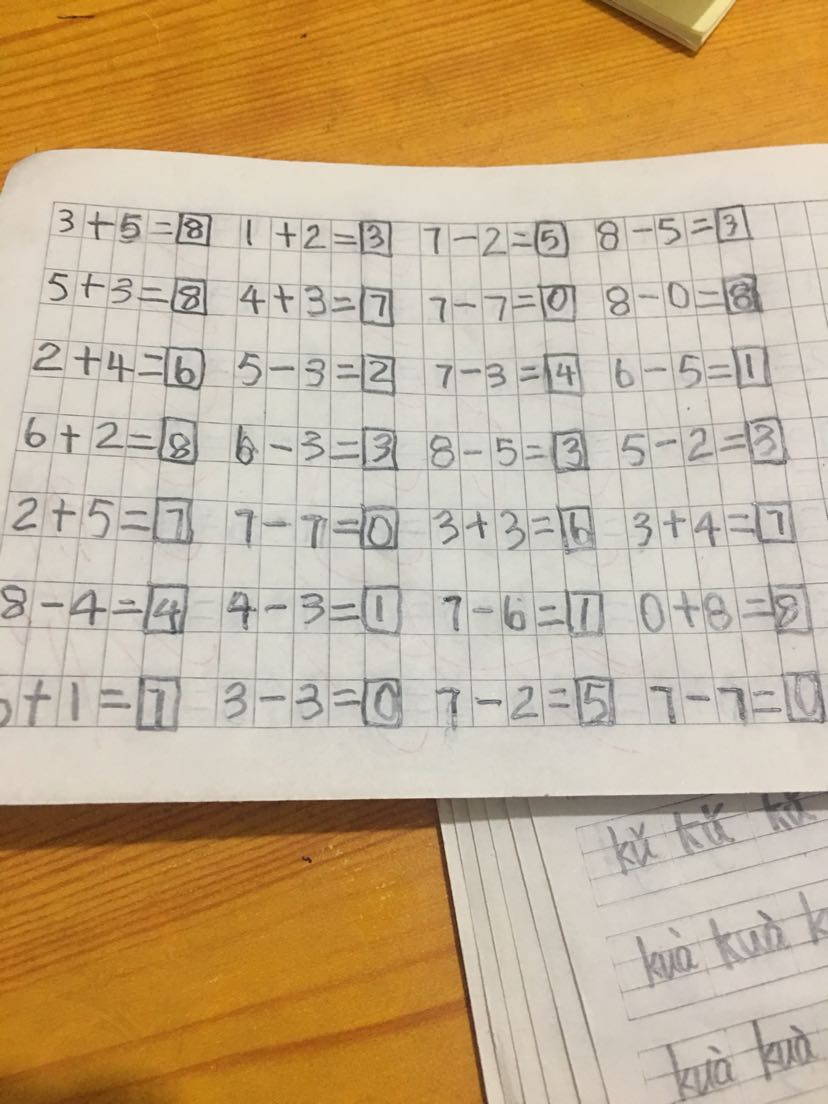 3+5=8 1+2=3 7-2=5 8-5=3
5+3=8 4+3=7 7-7=0 8-0=8
2+4=6 5-3=2 7-3=4 6-5=1
6+2=8 6-3=3 8-5=3 5-2=3
2+5=7 7-7=0 3+3=6 3+4=7
8-4=4 4-3=1 7-6=1 0+8=8
+1=7 3-3=0 7-2=5 7-7=0
kǔ kǔ kǔ
kuà kuà k
kuà kuà